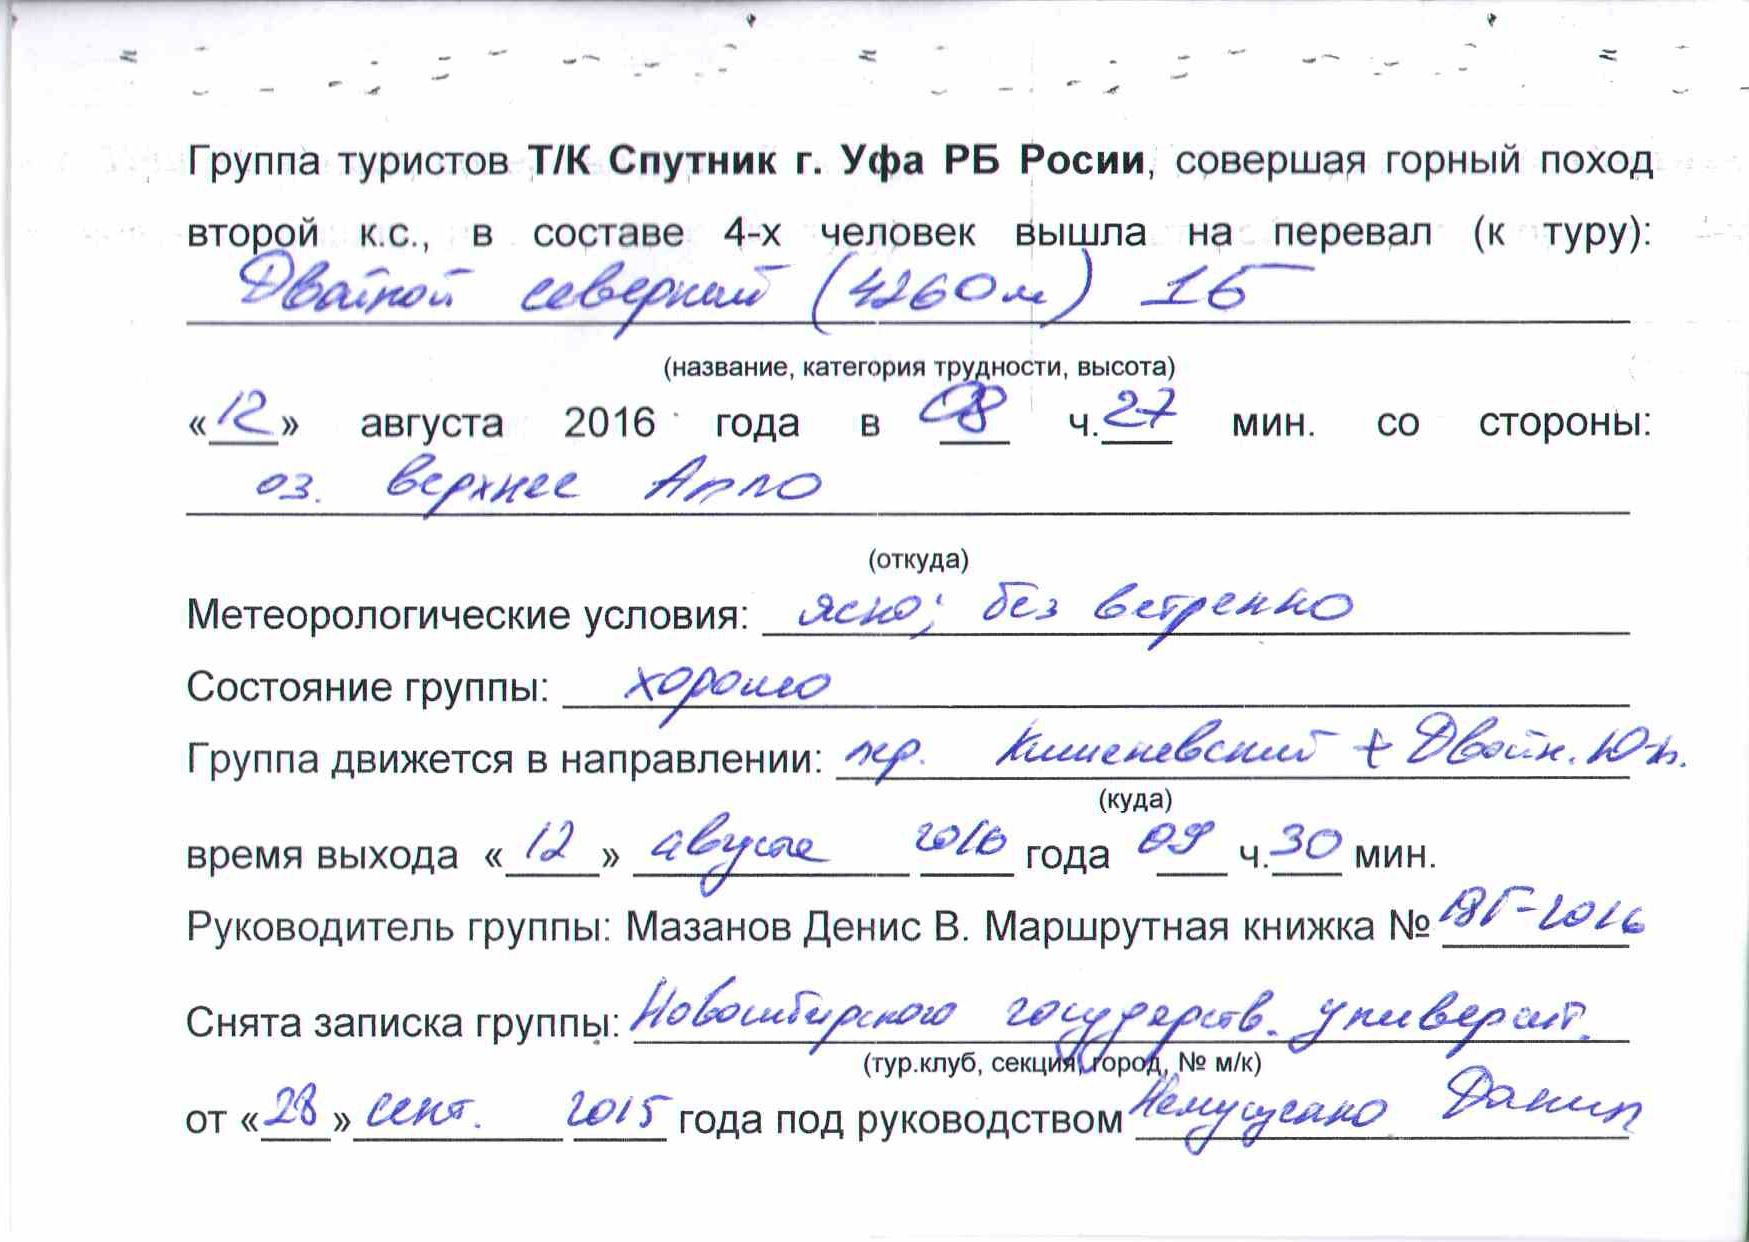 Группа туристов Т/К Спутник г. Уфа РБ Росии, совершая горный поход
второй к.с., в составе 4-х человек вышла на перевал (к туру):
Двойной северный (4260м) 1Б
(название, категория трудности, высота)
«12» августа 2016 года в 08 ч. 27 мин. со стороны:
оз. верхнее Алло
(откуда)
Метеорологические условия: ясно; без ветренно
Состояние группы: хорошо
Группа движется в направлении: пер. Кишеневский + Двойн. Юж.
(куда)
время выхода «12» августа 2016 года 09 ч. 30 мин.
Руководитель группы: Мазанов Денис В. Маршрутная книжка № -2016
Снята записка группы: Новосибирского государств. университ.
(тур.клуб, секция, город, № м/к)
от «28» сент. 2015 года под руководством Данил